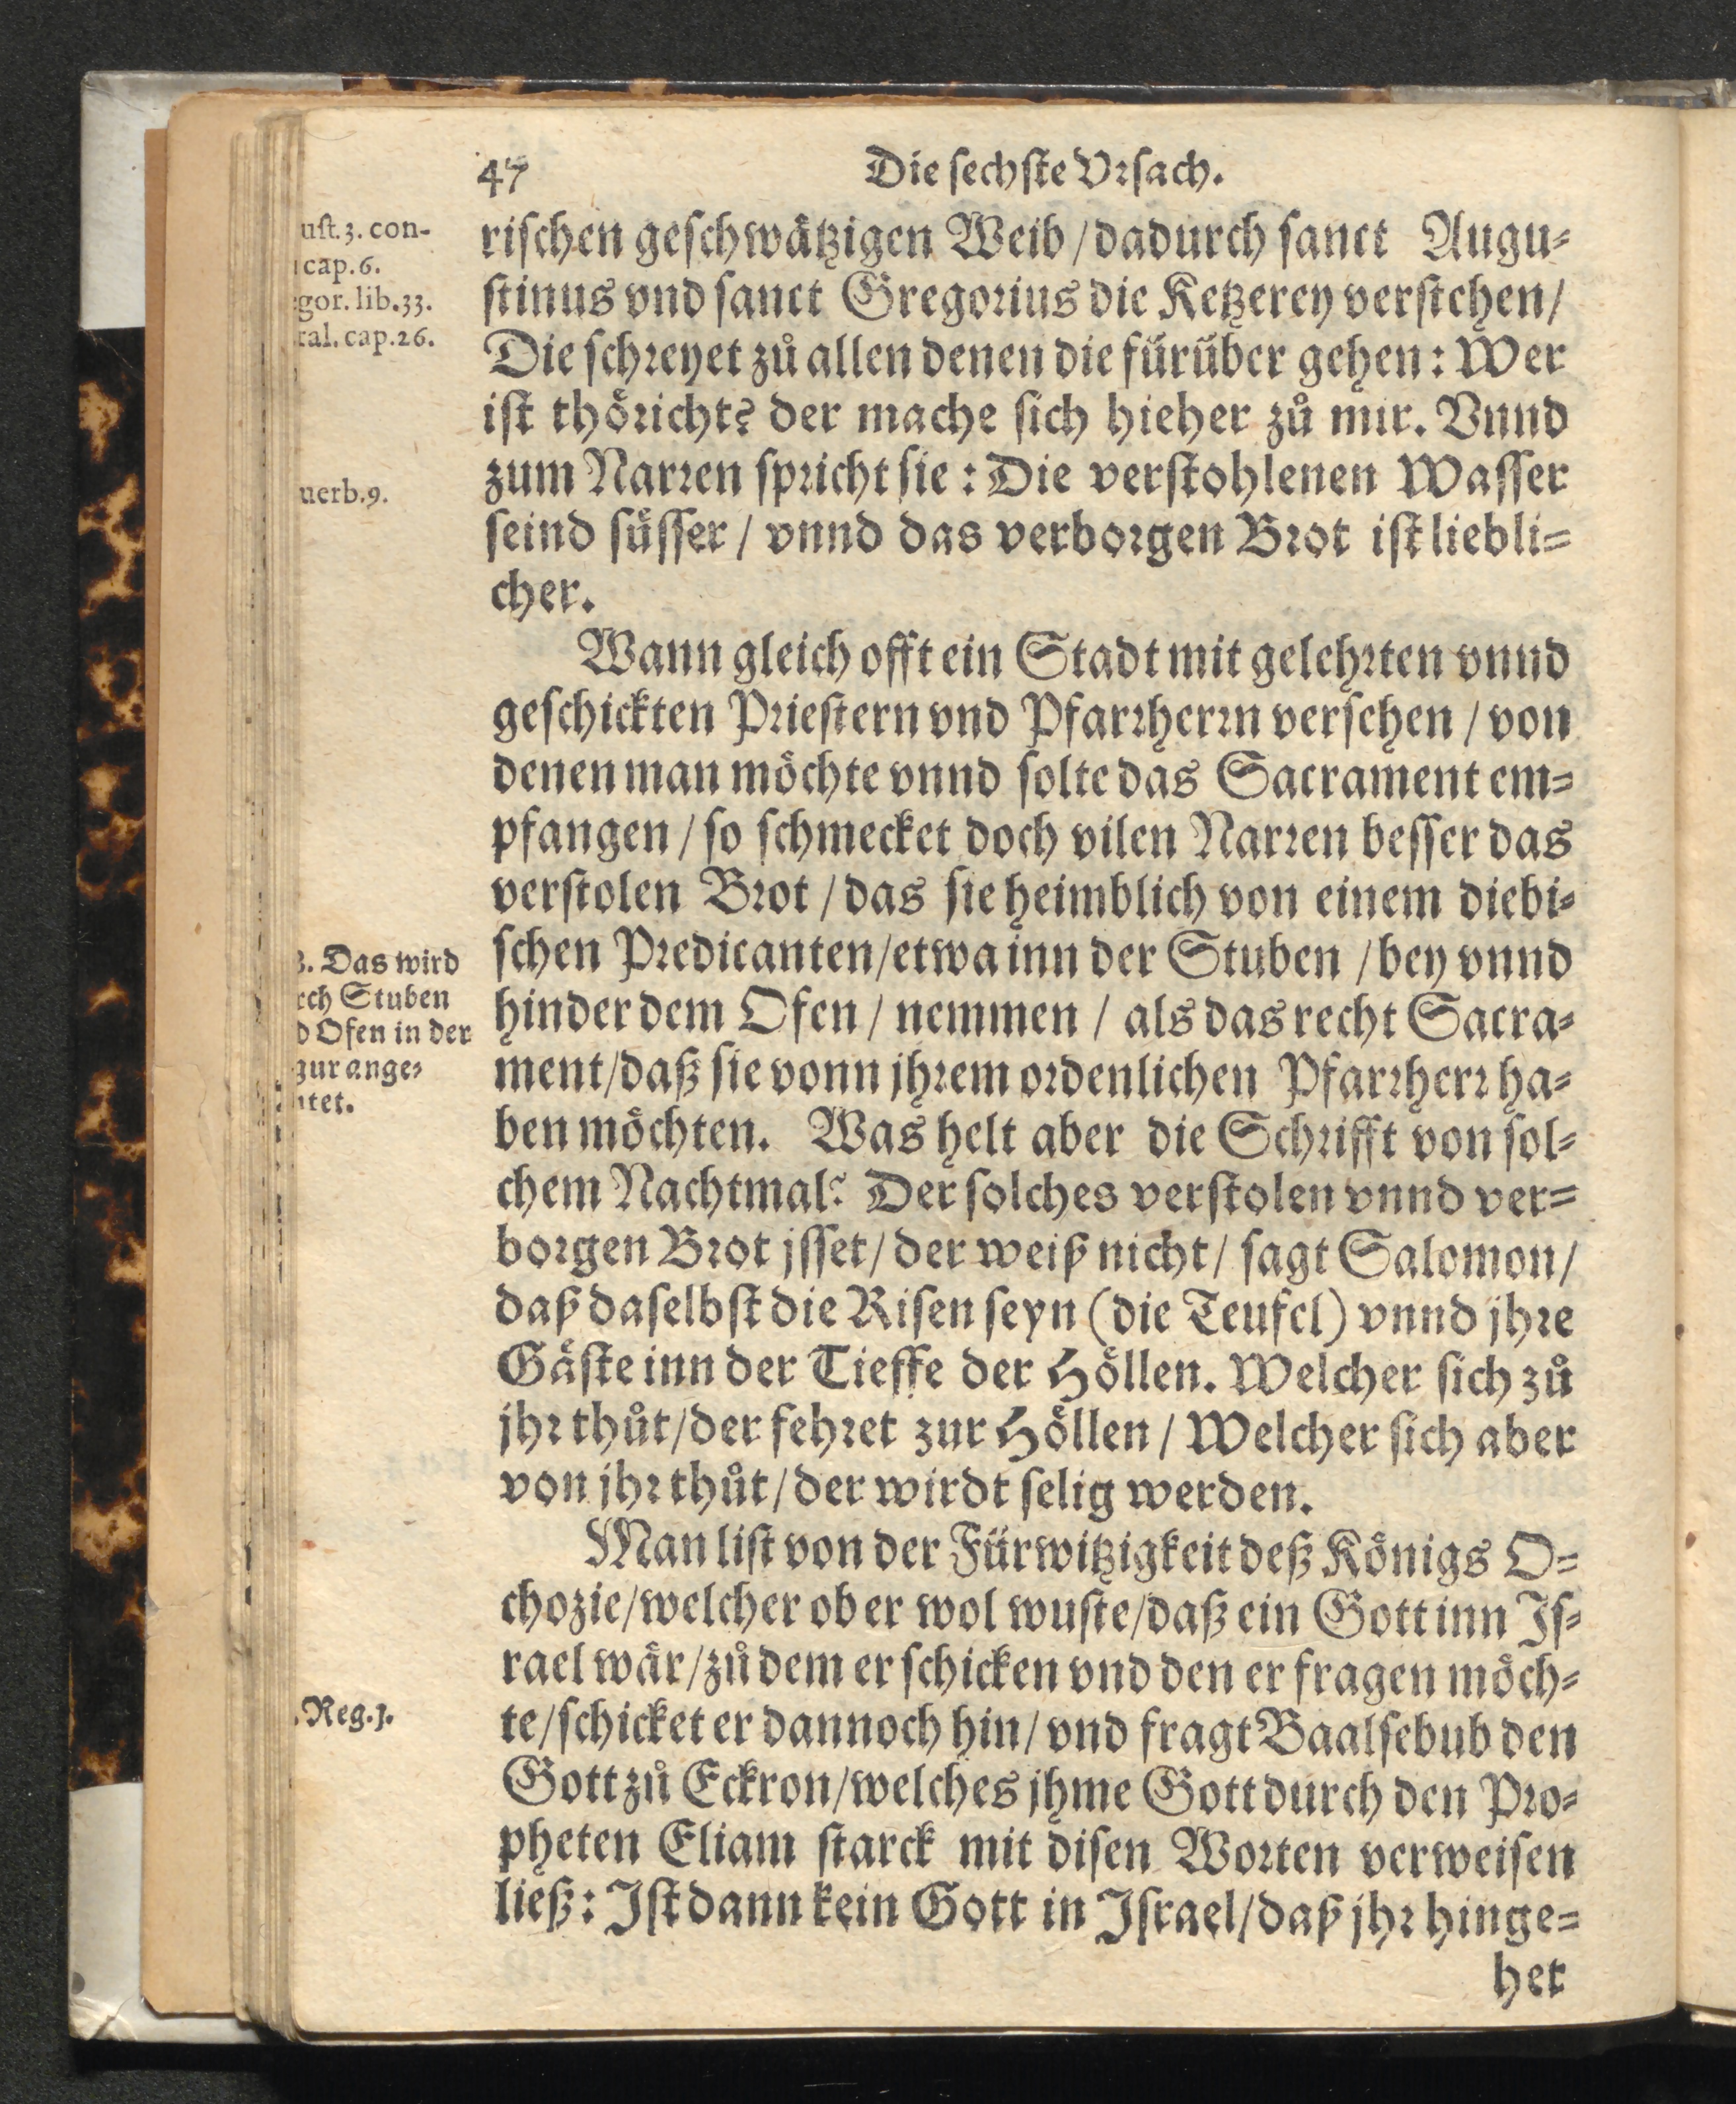 47 Die sechste Vrsach.
uſt. 3. con-
cap. 6.
gor. lib. 33.
ral. cap. 26.
uerb. 9.
riſchen geſchwaͤtzigen Weib / dadurch ſanct Augu-
ſtinus vnd ſanct Gregorius die Ketzerey verſtehen /
Die ſchreyet zů allen denen die fuͤruͤber gehen: Wer
iſt thoͤricht? der mache ſich hieher zů mir. Vnnd
zum Narren ſpricht ſie: Die verſtohlenen Waſſer
ſeind ſuͤſſer / vnnd das verborgen Brot iſt liebli-
cher.
Wann gleich offt ein Stadt mit gelehrten vnnd
geſchickten Prieſtern vnd Pfarrherrn verſehen / von
denen man moͤchte vnnd ſolte das Sacrament em-
pfangen / ſo ſchmecket doch vilen Narren beſſer das
verſtolen Brot / das ſie heimblich von einem diebi-
ſchen Predicanten / etwa inn der Stuben / bey vnnd
hinder dem Ofen / nemmen / als das recht Sacra-
ment / daß ſie vonn jhrem ordenlichen Pfarrherr ha-
ben moͤchten. Was helt aber die Schrifft von ſol-
chem Nachtmal? Der ſolches verſtolen vnnd ver-
borgen Brot jſſet / der weiß nicht / ſagt Salomon /
daß daſelbſt die Riſen ſeyn (die Teufel) vnnd jhre
Gaͤſte inn der Tieffe der Hoͤllen. Welcher ſich zů
jhr thůt / der fehret zur Hoͤllen / Welcher ſich aber
von jhr thůt / der wirdt ſelig werden.
B. Das wird
rch Stuben
d Ofen in der
gur ange-
utet.
Man liſt von der Fuͤrwitzigkeit deß Koͤnigs O-
chozie / welcher ob er wol wuſte / daß ein Gott inn Iſ-
rael waͤr / zů dem er ſchicken vnd den er fragen moͤch-
te / ſchicket er dannoch hin / vnd fragt Baalſebub den
Gott zů Eckron / welches jhme Gott durch den Pro-
pheten Eliam ſtarck mit diſen Worten verweiſen
ließ: Iſt dann kein Gott in Iſrael / daß jhr hinge-
. Reg. 1.
het